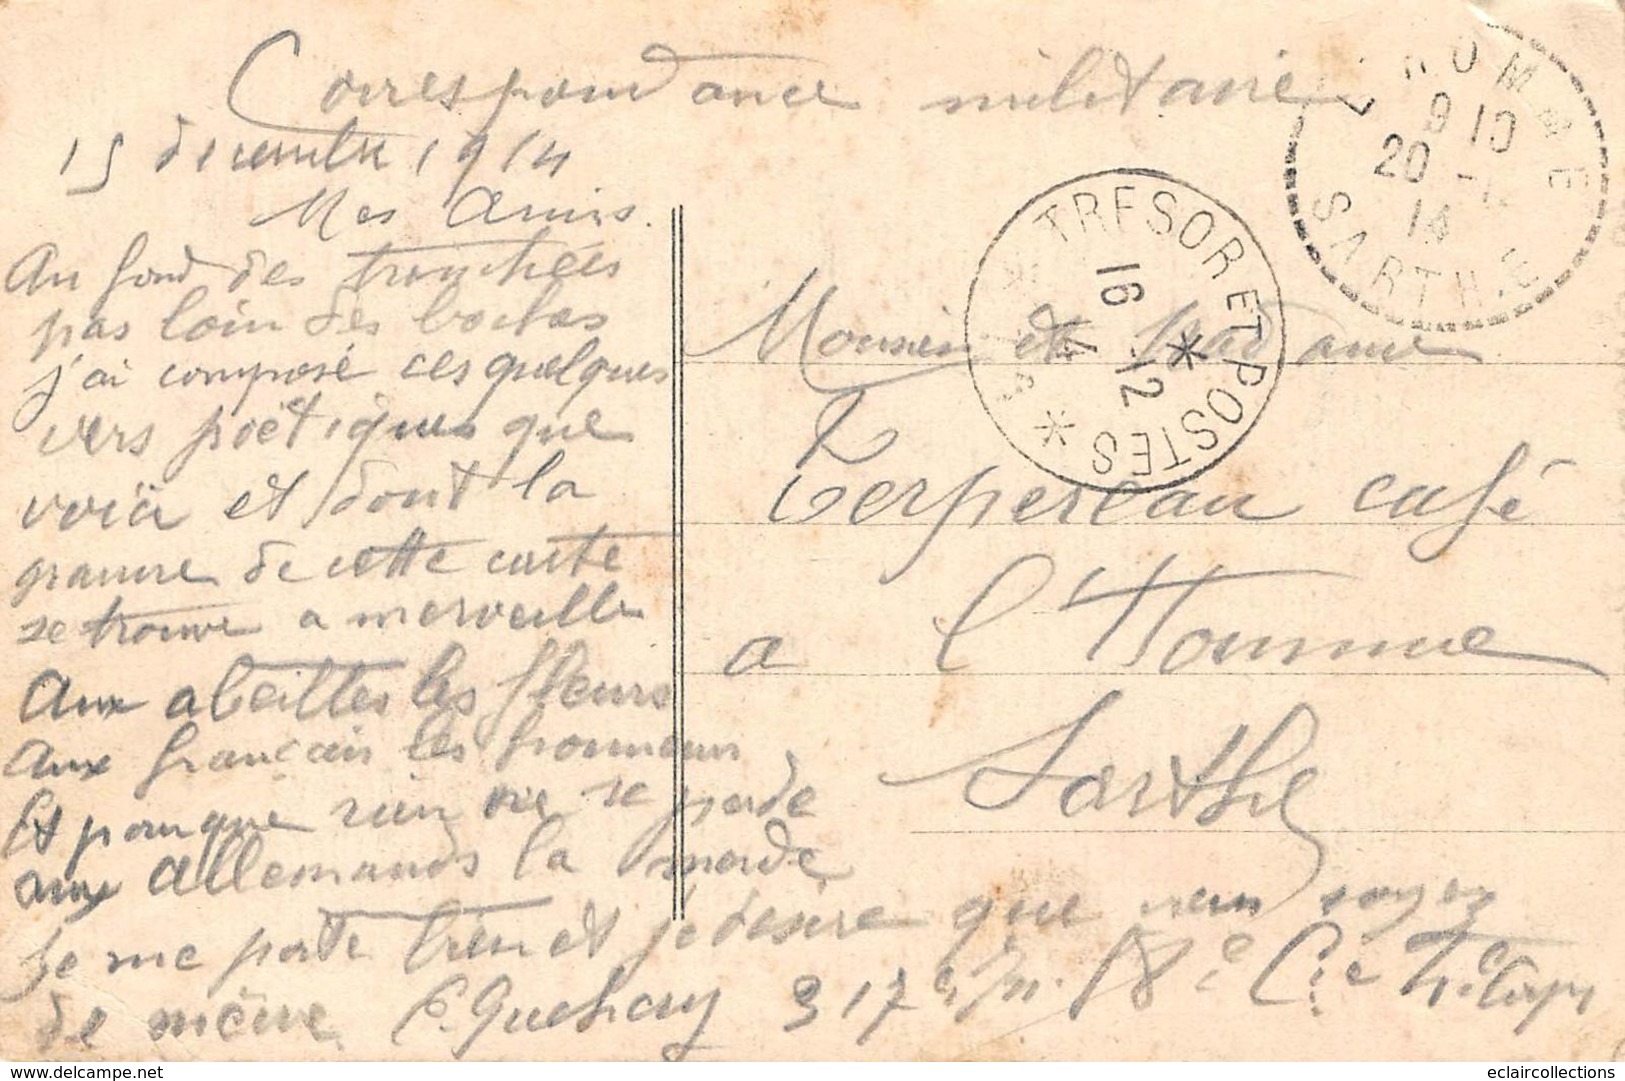 Correspondance militaire
15 décembre 1914
Mes Amis.
Au fond des tranchées
pas loin des boches
j'ai composé ces quelques
vers poëtiques que
voiçi et dont la
gravure de cette carte
se trouve a merveille
Aux abeilles les fleurs
Aux français les honneurs
Et pour que rien ne se perde
aux Allemands la merde
Je me porte bien et je desire que vous soyez
de même. 317e 18e Cie
L'HOMME
9 10
20
14
SARTHE
TRESOR ET POSTES
16 12
14
Monsieur et Madame
Terpereau café
a l'Homme
Sarthe
eclaircollections